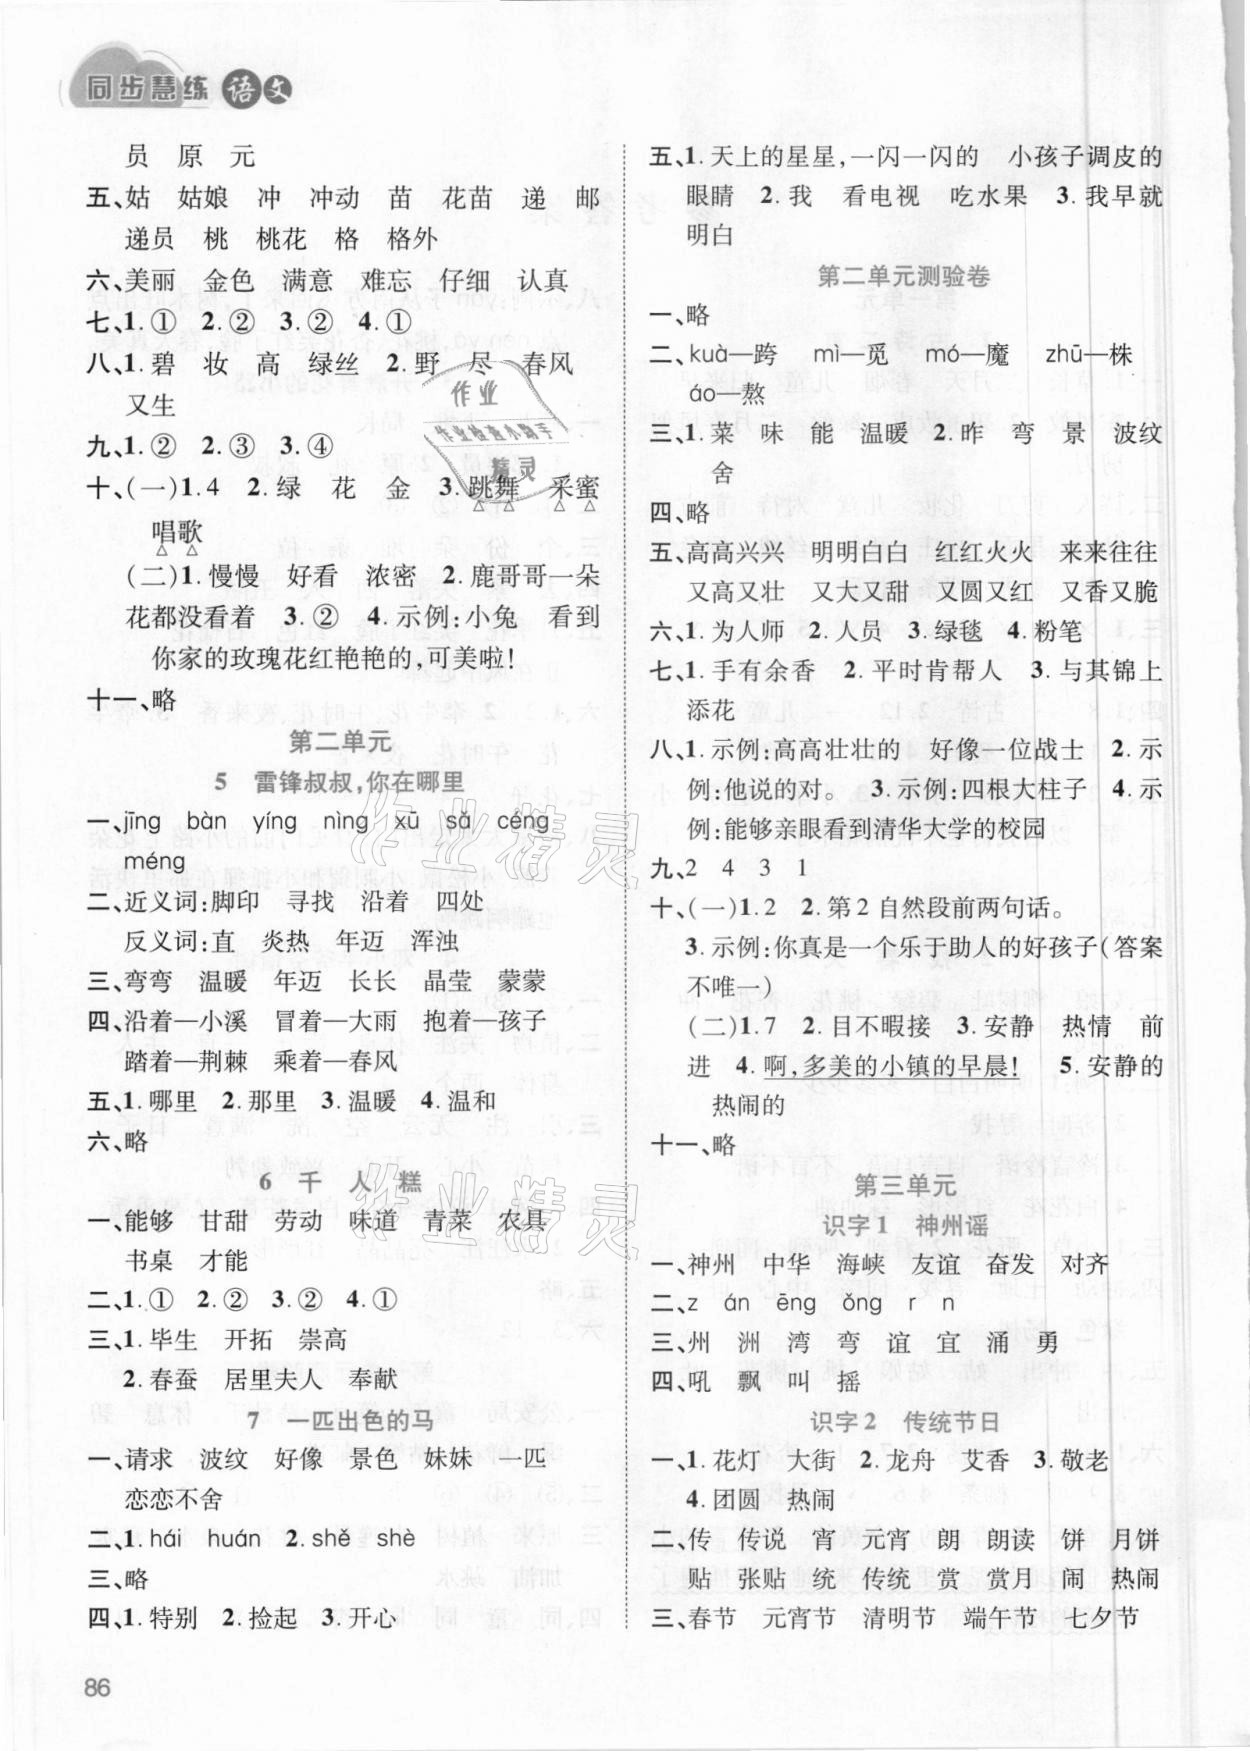 同步慧练 语文
员 原 元
五、姑 姑娘 冲 冲动 苗 花苗 递 邮
递员 桃 桃花 格 格外
六、美丽 金色 满意 难忘 仔细 认真
七、1.① 2.② 3.② 4.①
八、1.碧 妆 高 绿丝 2.野 尽 春风
又生
九、1.② 2.③ 3.④
十、(一)1.4 2.绿 花 金 3.跳舞 采蜜
唱歌
(二)1.慢慢 好看 浓密 2.鹿哥哥一朵
花都没看着 3.② 4.示例:小兔 看到
你家的玫瑰花红艳艳的,可美啦!
十一、略
第二单元
5 雷锋叔叔,你在哪里
一、jīng bàn yíng nìng xū sǎ céng
méng
二、近义词:脚印 寻找 沿着 四处
反义词:直 炎热 年迈 浑浊
三、弯弯 温暖 年迈 长长 晶莹 蒙蒙
四、沿着—小溪 冒着—大雨 抱着—孩子
踏着—荆棘 乘着—春风
五、1.哪里 2.那里 3.温暖 4.温和
六、略
6 千人糕
一、能够 甘甜 劳动 味道 青菜 农具
书桌 才能
二、1.① 2.② 3.② 4.①
三、1.毕生 开拓 崇高
2.春蚕 居里夫人 奉献
7 一匹出色的马
一、请求 波纹 好像 景色 妹妹 一匹
恋恋不舍
二、1.hái huán 2.shě shè
三、略
四、1.特别 2.捡起 3.开心
86
五、1.天上的星星,一闪一闪的 小孩子调皮的
眼睛 2.我 看电视 吃水果 3.我早就
明白
第二单元测验卷
一、略
二、kuà—跨 mì—觅 mó—魔 zhū—株
áo—熬
三、1.菜 味 能 温暖 2.昨 弯 景 波纹
舍
四、略
五、高高兴兴 明明白白 红红火火 来来往往
又高又壮 又大又甜 又圆又红 又香又脆
六、1.为人师 2.人员 3.绿毯 4.粉笔
七、1.手有余香 2.平时肯帮人 3.与其锦上
添花
八、1.示例:高高壮壮的 好像一位战士 2.示
例:他说的对。 3.示例:四根大柱子 4.示
例:能够亲眼看到清华大学的校园
九、2 4 3 1
十、(一)1.2 2.第2自然段前两句话。
3.示例:你真是一个乐于助人的好孩子(答案
不唯一)
(二)1.7 2.目不暇接 3.安静 热情 前
进 4.啊,多美的小镇的早晨! 5.安静的
热闹的
十一、略
第三单元
识字1 神州谣
一、神州 中华 海峡 友谊 奋发 对齐
二、z án ēng ǒng r n
三、州 洲 湾 弯 谊 宜 涌 勇
四、吼 飘 叫 摇
识字2 传统节日
一、1.花灯 大街 2.龙舟 艾香 3.敬老
4.团圆 热闹
二、传 传说 宵 元宵 朗 朗读 饼 月饼
贴 张贴 统 传统 赏 赏月 闹 热闹
三、春节 元宵节 清明节 端午节 七夕节
作业
作业检查小助手
精灵
作业精灵
作业精灵